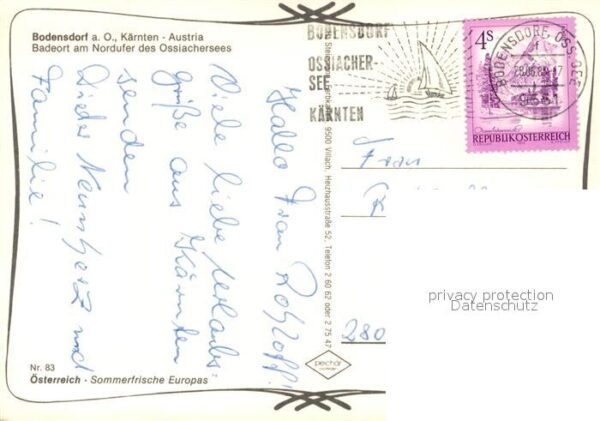 Bodensdorf a. O., Kärnten - Austria
Badeort am Nordufer des Ossiachersees
Hallo Frau
Viele liebe Urlaubs-
grüße aus Kärnten
senden
und
Familie!
Nr. 83
Österreich - Sommerfrische Europas
9500 Villach, Heizhausstraße 52, Telefon 2 60 62 oder 2 75 47
pechar
BODENSDORF
OSSIACHER-
SEE
KÄRNTEN
4S
REPUBLIK ÖSTERREICH
BODENSDORF, OSS. SEE
9551
Frau
280
privacy protection
Datenschutz